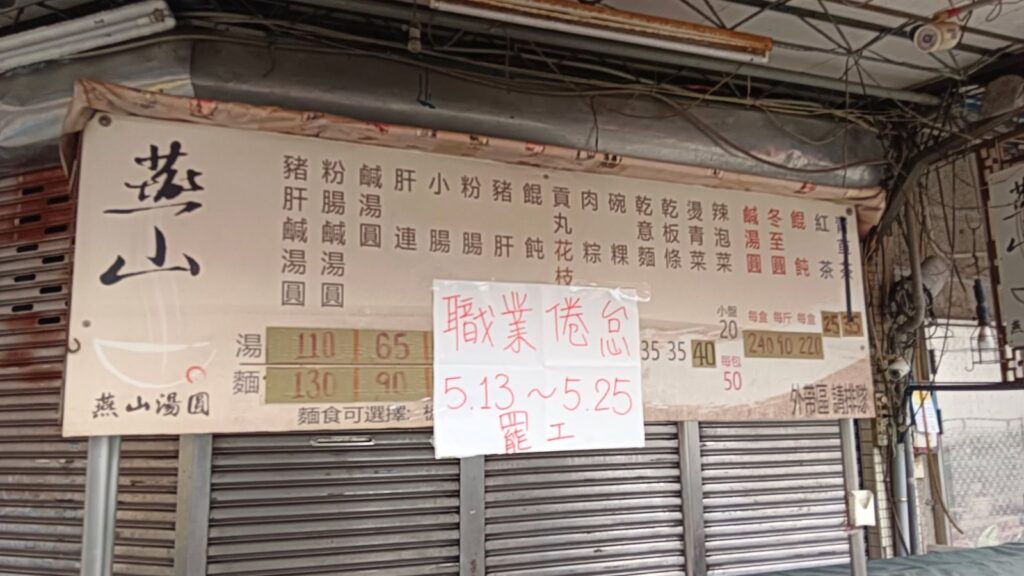 燕山
燕山湯圓
豬肝鹹湯圓
粉腸鹹湯圓
鹹湯圓
肝連
小腸
粉腸
豬肝
餛飩
貢丸花枝
肉粽
碗粿
乾意麵
乾板條
燙青菜
辣泡菜
鹹湯圓
冬至圓
餛飩
紅茶
青草茶
湯 110 65
麵 130 90
35 35 40
小盤 20
每包 50
每盒 每斤 每盒
240 90 220
25 35
麵食可選擇:
外帶區 請排隊
職業倦怠
5.13～5.25
罷工